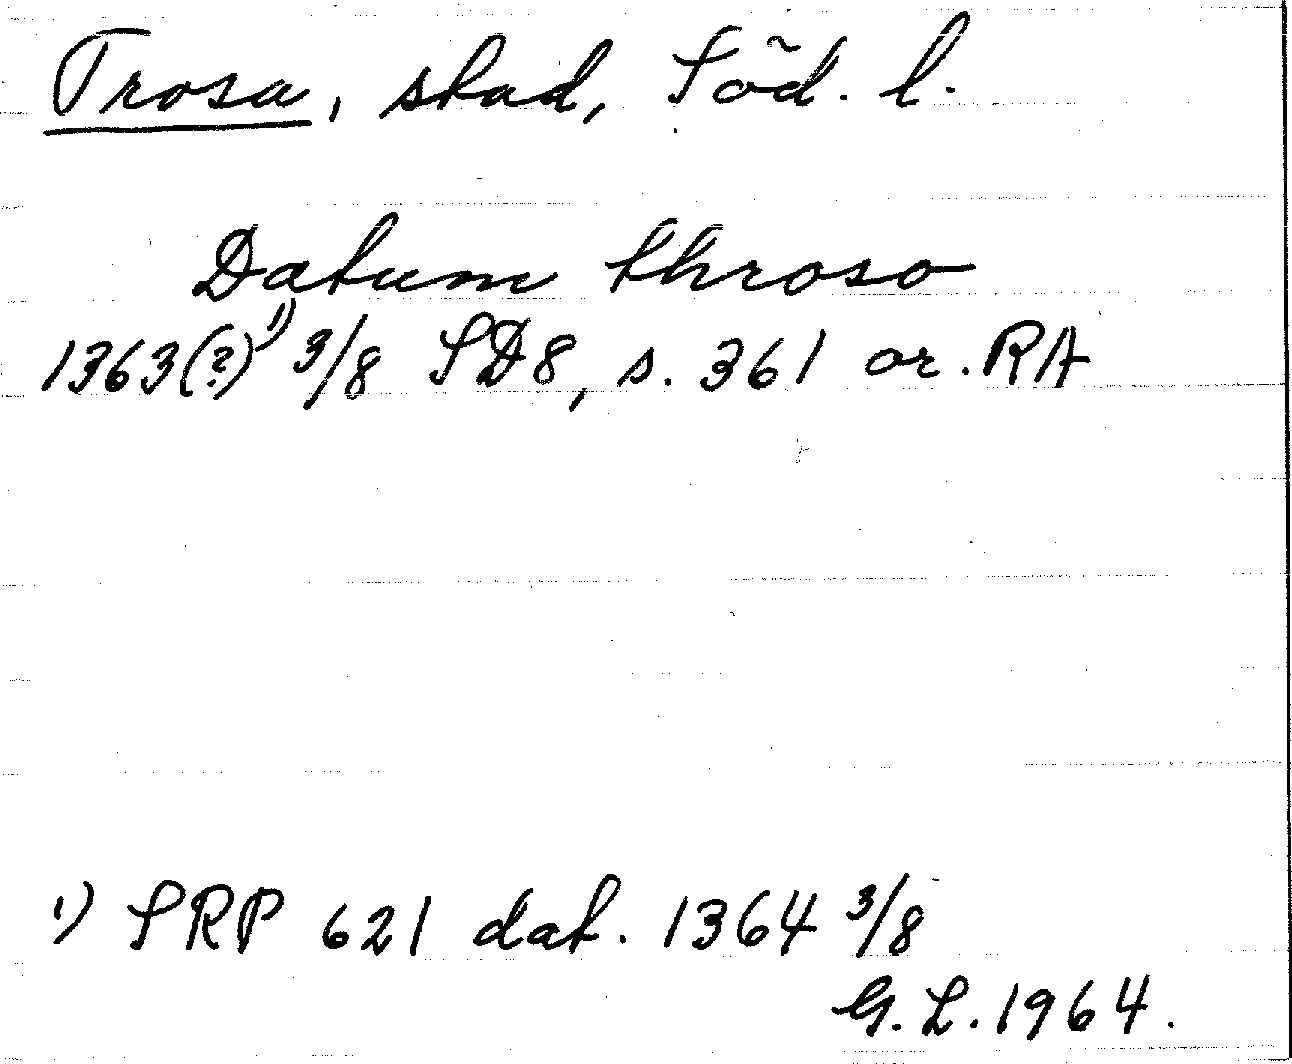 Trosa, stad, Söd. l.
Datum throso
1363(?)¹⁾ 3/8 SD8, s. 361 or. RA
¹⁾ SRP 621 dat. 1364 3/8
G. L. 1964.